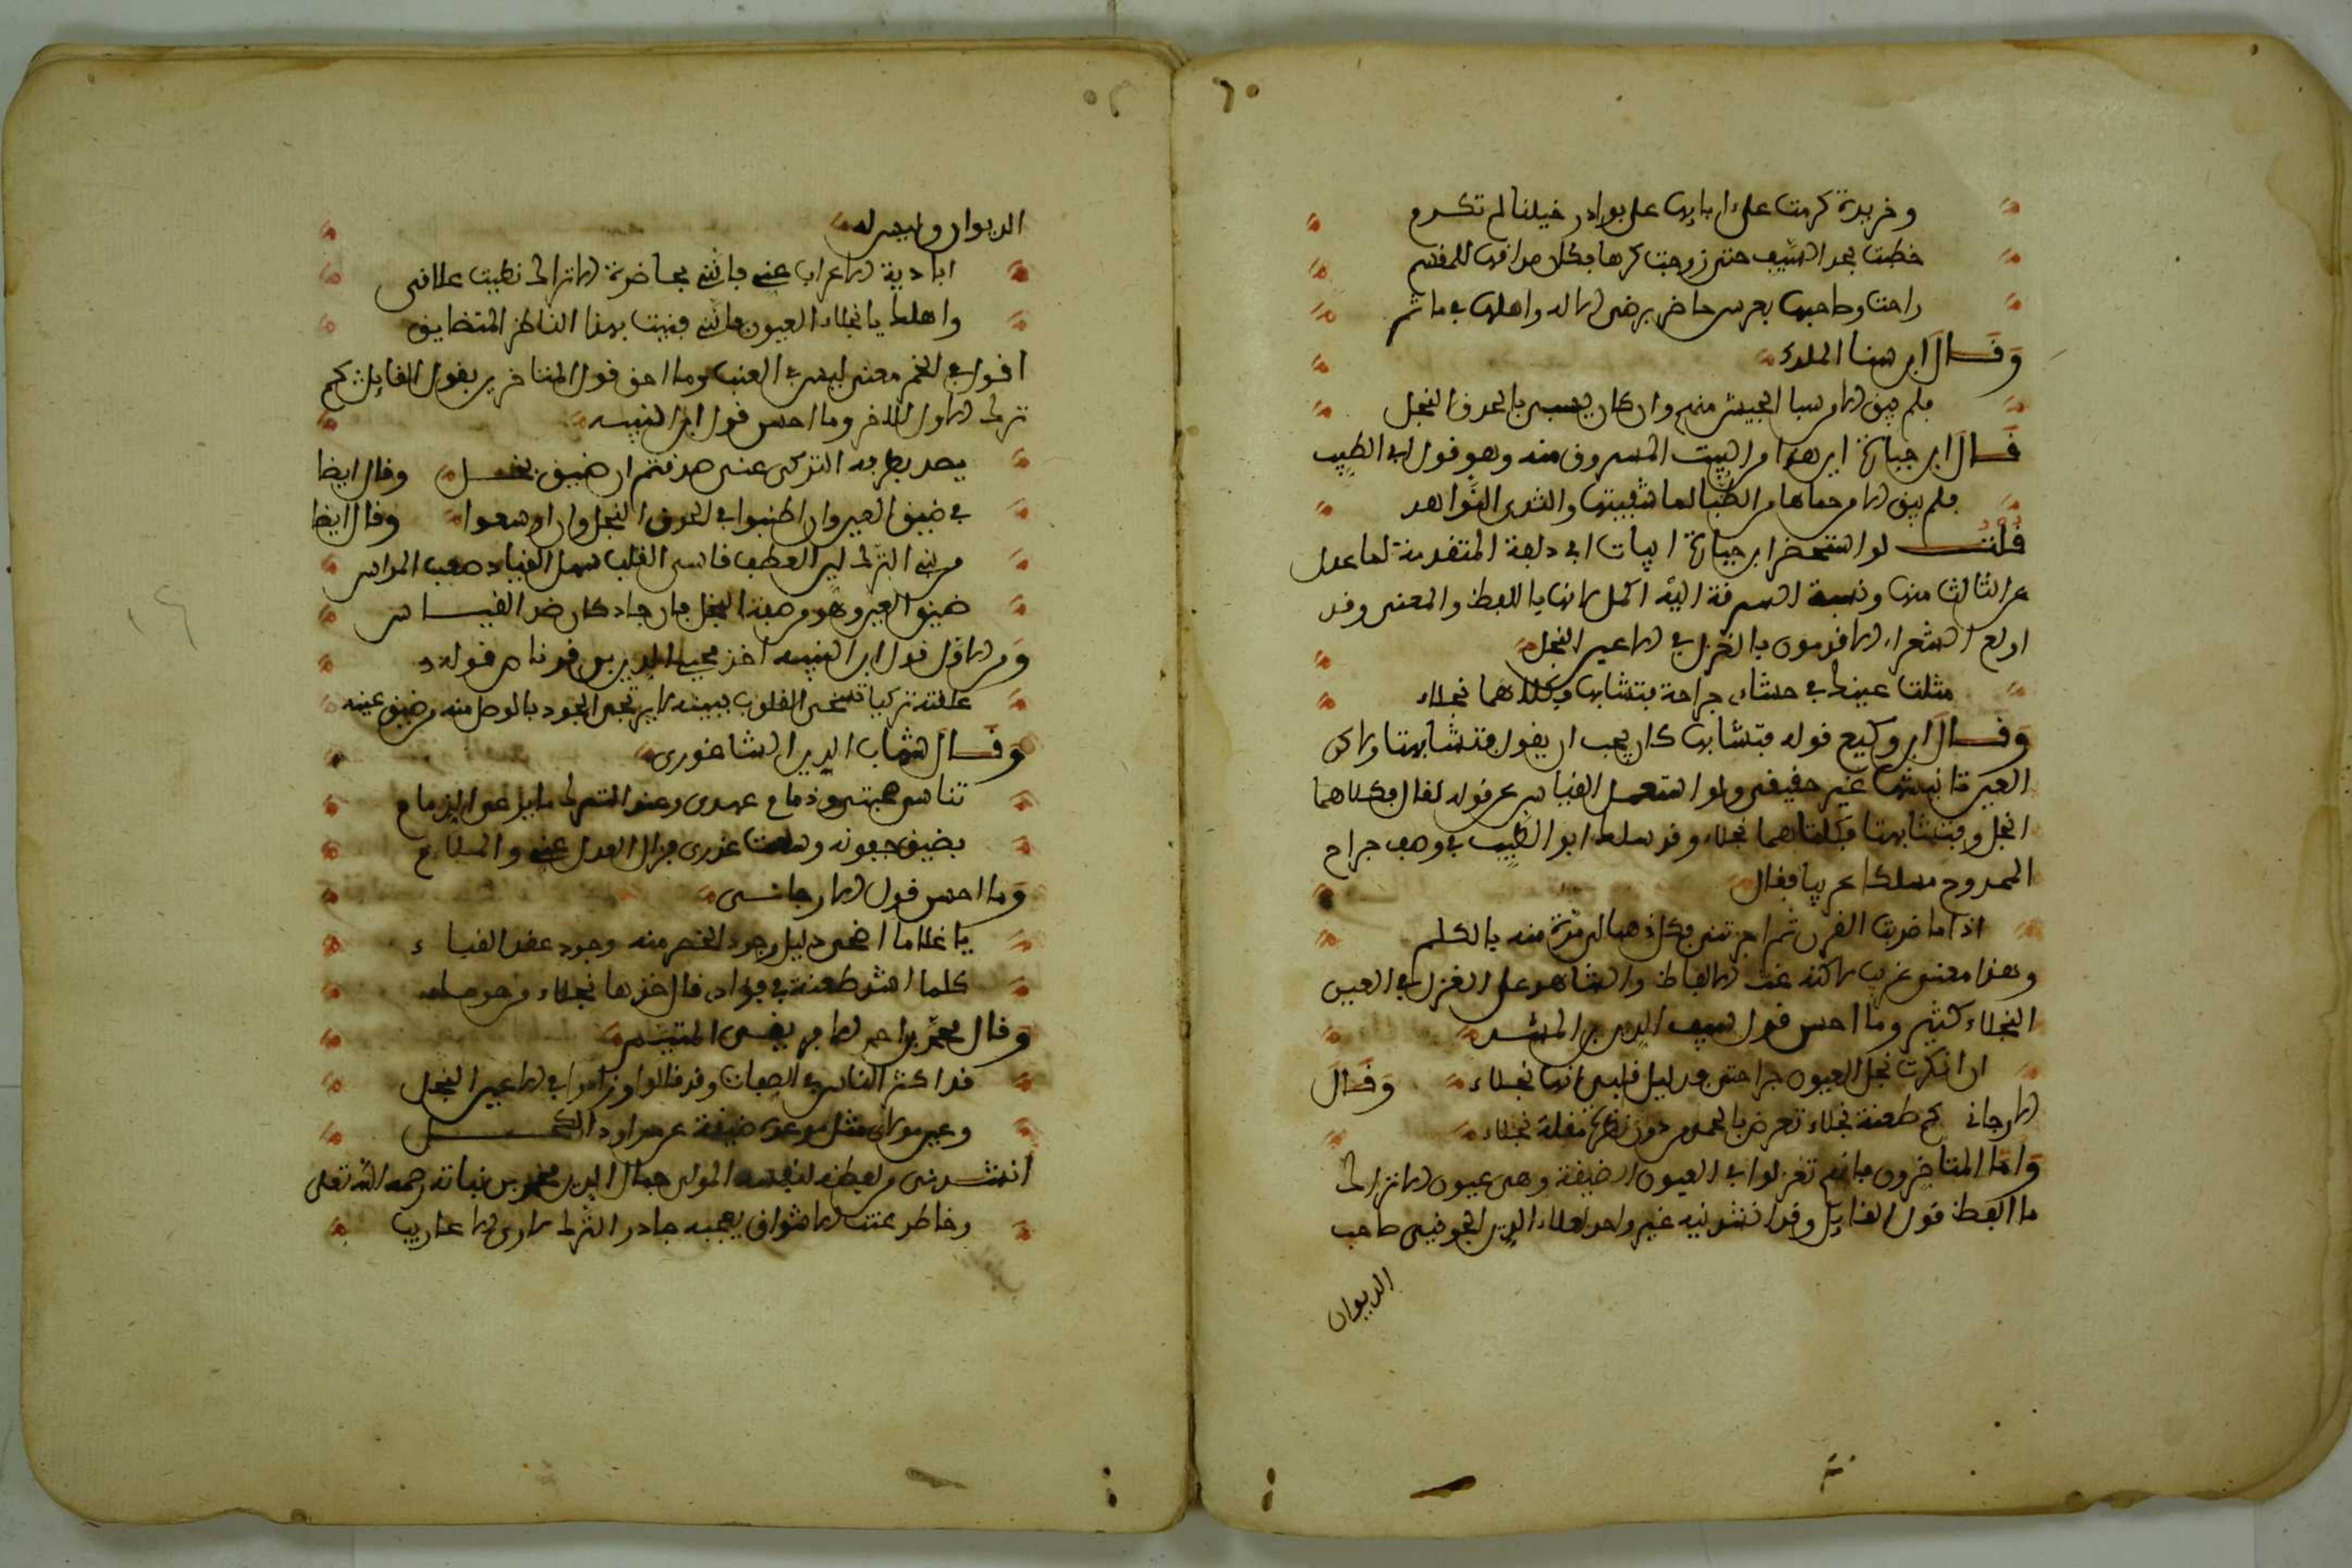 وخريدة كرمت على اربابها على بوادر خيلنا لم تكرم
خطبت بحد السيف حتى زوجت كرها بكل صداقها للمقسم
راحت وصاحبها بعرس حاضر يرضى الاله واهلها في ماتم
وقال ابن هنا الملك
فلم يبق الا من سبا الجيش منهم وان كان يسبى بالحدق النجل
قال ابن جبارة ان هذا من البيت المسروق منه وهو قول ابي الطيب
فلم يبق الا من حماها من الظبا لما شفتيها والثدى النواهد
قلت لو استحضر ابن جبارة ابيات ابي دلهة المتقدمة لما عدل
عن الثالث منها ونسبة السرقة اليه اكمل لانها باللفظ والمعنى وقد
اولع الشعراء الاقدمون بالغزل في الاعين النجل
مثلت عينك في حشاى جراحة فتشابها وكلاهما نجلاء
وقال ابن وكيع قوله فتشابها كان يجب ان يقول فتشابهتا ولاكن
العين تانيثها غير حقيقى ولو استعمل القياس عن قوله لقال فكلاهما
انجل وفتشابهتا فكلتاهما نجلاء وقد سلك ابو الطيب في وصف جراح
الممدوح مسلكا غريبا فقال
اذا ما ضربت القرن ثم اجزتنى فكل ذهبا لى مرة منه بالكلم
وهذا معنى غريب لاكنه غث الالفاظ والشاهد على الغزل في العين
النجلاء كثير وما احسن قول سيف الدين بن المشد
ان انكرت نجل العيون جراحتى فدليل قلبى انها نجلاء وقال
الارجانى كم طعنة نجلاء تعرض بالحمى من دون نظرة مقلة نجلاء
واما المتاخرون فانهم تغزلوا في العيون الضيقة وهى عيون الاتراك
ما الطف قول القايل وقد انشدنيه غير واحد لعلاء الدين الجوينى صاحب
الديوان
الديوان وليس له
ابادية الاعراب عنى فاننى بحاضرة الاتراك نطيت علائقى
واهلك يا نجلاء العيون فاننى فتنت بهذا الناظر المتضايق
اقول في الختم معنى ليس في العنب وما احق قول المتاخرين بقول القايل كم
ترك الاول للاخر وما احسن قول ابن النبيه
يصد بطرفه التركى عنى صدقتم ان ضيق بخل وقال ايضا
في ضيق العين وان اطنبوا في الحدق النجل وان اوسعوا وقال ايضا
من بنى الترك لين العطف قاسى القلب سهل القياد صعب المراس
ضيق العين وهو من صفة البخل فان جاد كان ضد القياس
ومن الاول قول ابن النبيه اخذ محيى الدين بن قرناص قوله
علقته تركيا تسخى القلوب ببينه اين تجى الجود بالوصل منه وضيق عينه
وقال شهاب الدين الشاغورى
تناسى صحبتى وذمام عهدى وعند الترك ما يرعى الذمام
بضيق جفونه وسعت عذرى فزال العذل عنى والملام
وما احسن قول الارجانى
يا غلاما اضحى دليل وجود الخصر منه وجود عقد القباء
كلما اشر طعنة في فؤادى قال خذها نجلاء من حوصاء
وقال محمد بن احمد الافريقى المتيم
قد اكثر الناس في الصفات وقد قالوا وزادوا في الاعين النجل
وعين مولاى مثل موعده ضيقة عن مراود الكحل
انشدنى من لفظه لنفسه المولى جمال الدين محمد بن نباتة رحمه الله تعلى
وخاطر عنت الاشواق يعجبه جاذر الترك لاربى الاعاريب